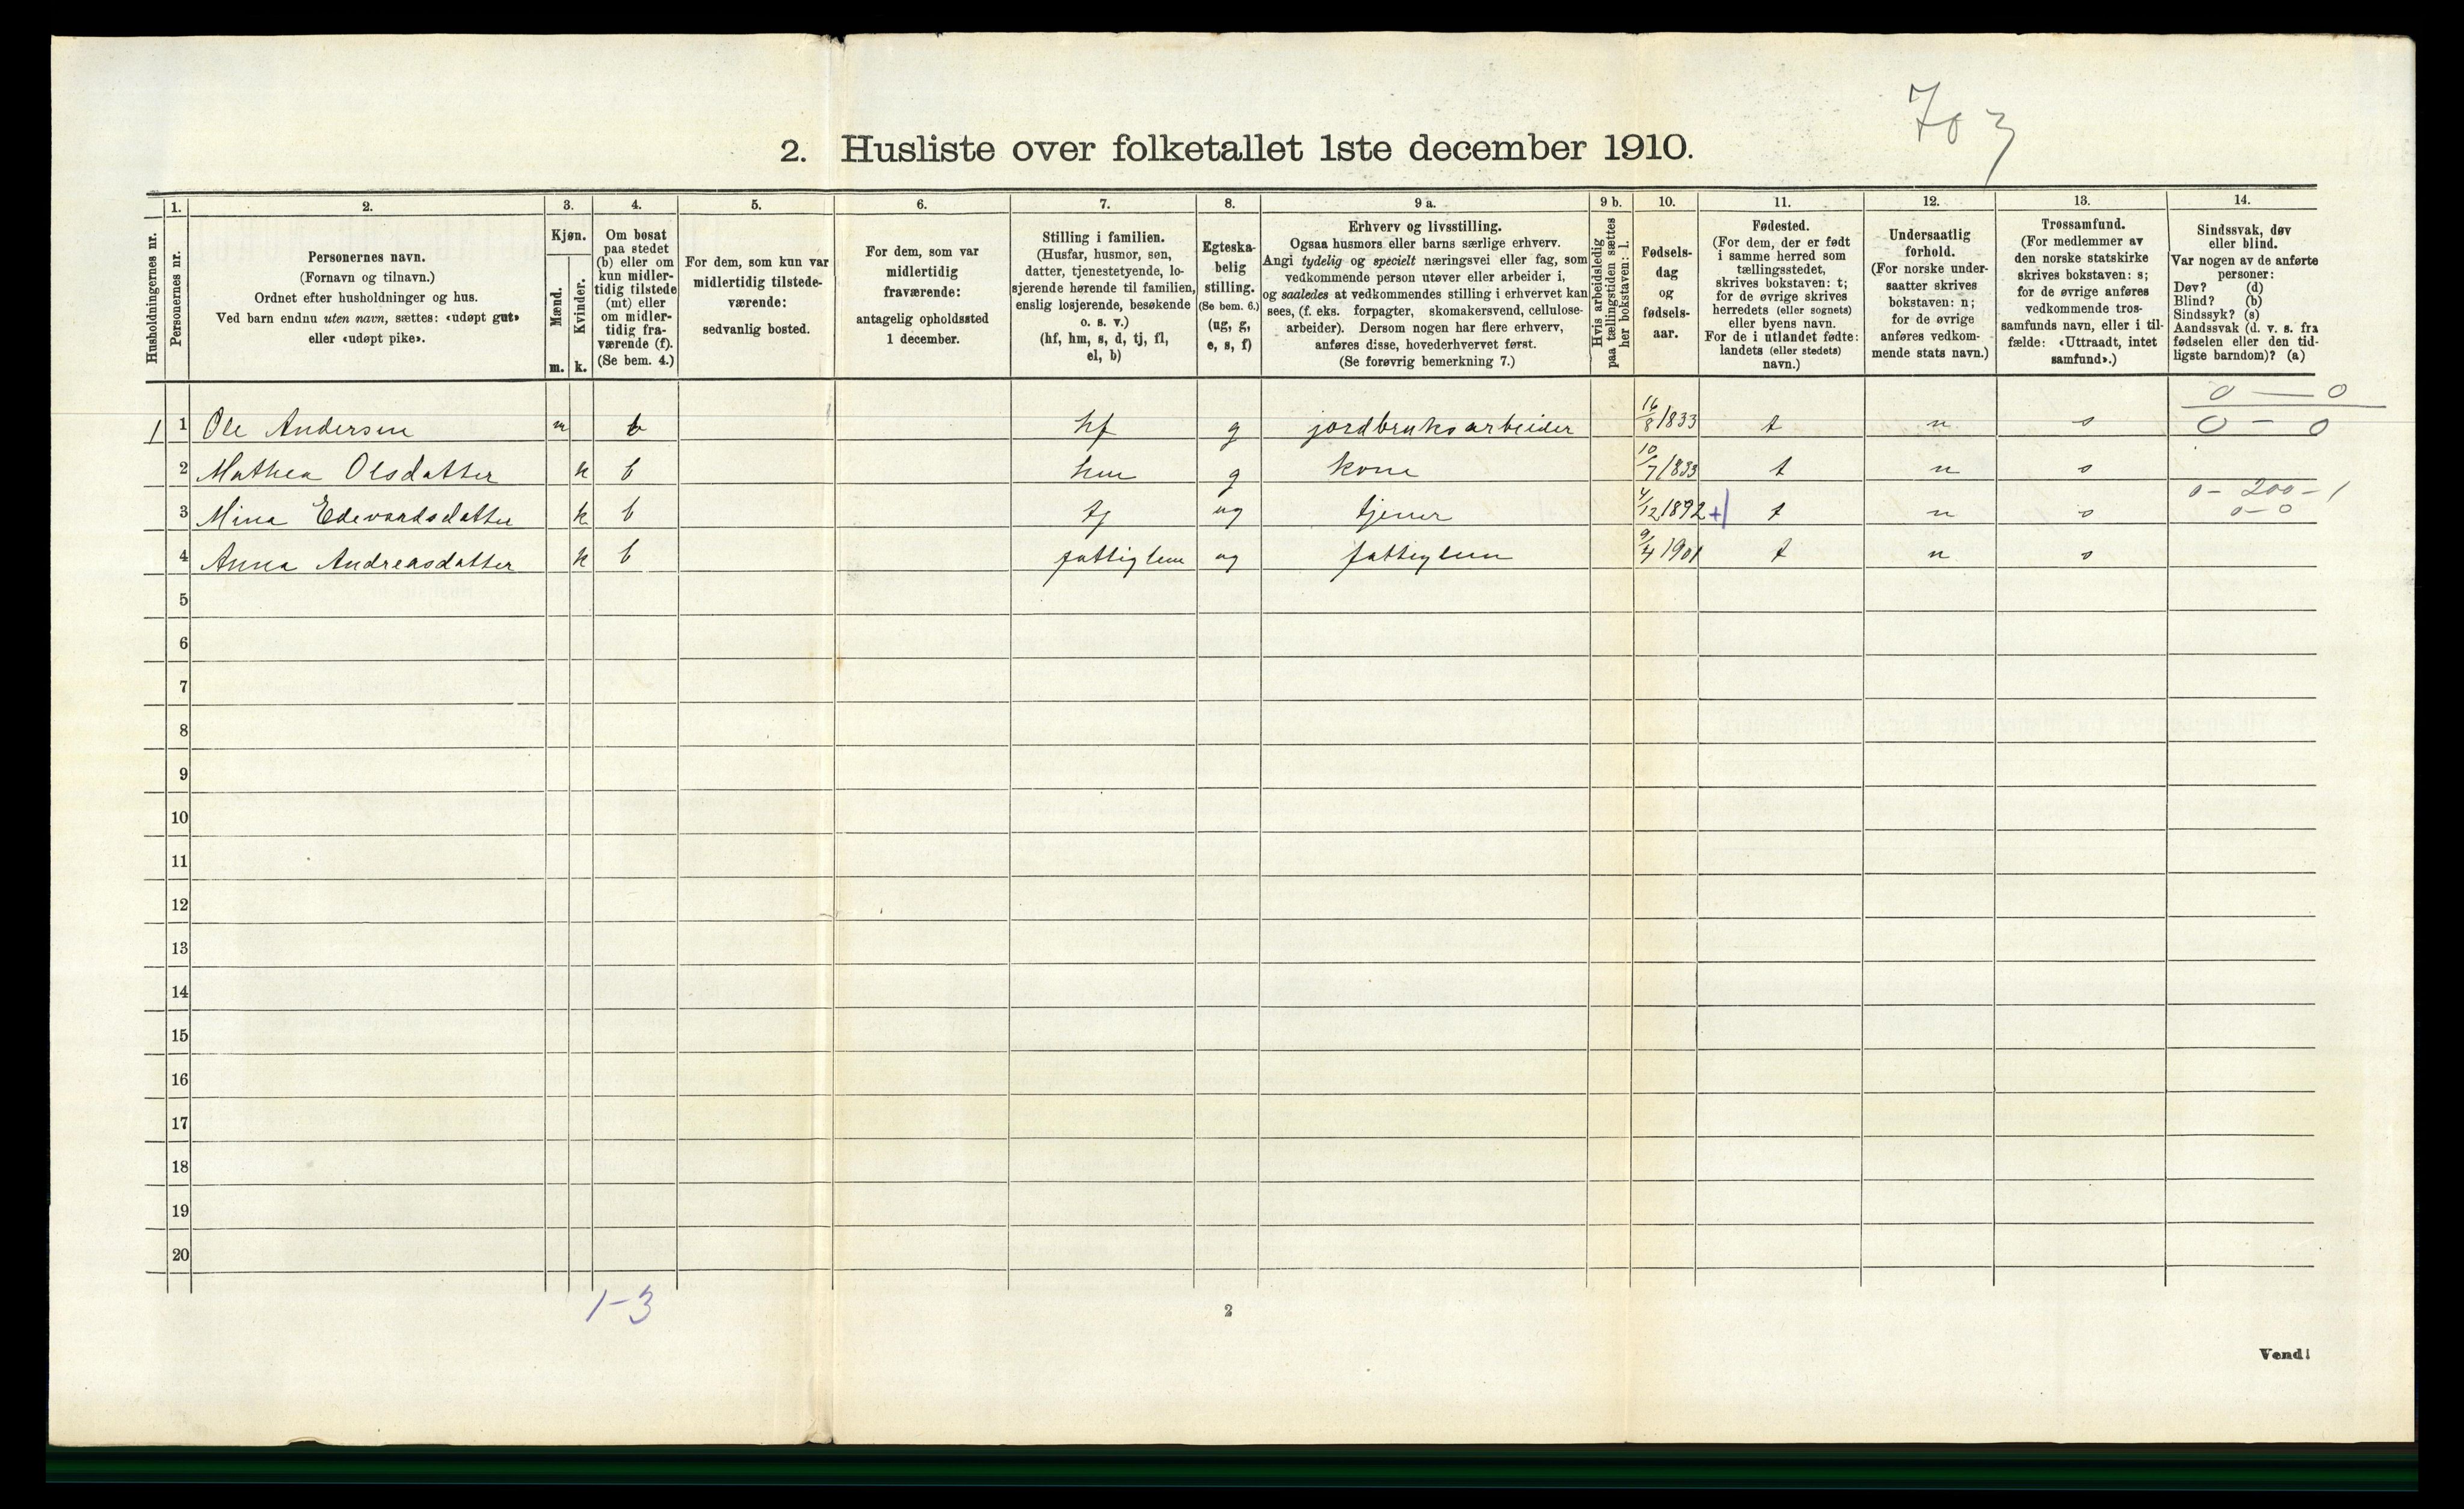 703
2. Husliste over folketallet 1ste december 1910.
Husholdningernes nr.
1.
Personernes nr.
2.
Personernes navn.
(Fornavn og tilnavn.)
Ordnet efter husholdninger og hus.
Ved barn endnu uten navn, sættes: «udøpt gut»
eller «udøpt pike».
3.
Kjøn.
Mænd.
m.
Kvinder.
k.
4.
Om bosat
paa stedet
(b) eller om
kun midler-
tidig tilstede
(mt) eller
om midler-
tidig fra-
værende (f).
(Se bem. 4.)
5.
For dem, som kun var
midlertidig tilstede-
værende:
sedvanlig bosted.
6.
For dem, som var
midlertidig
fraværende:
antagelig opholdssted
1 december.
7.
Stilling i familien.
(Husfar, husmor, søn,
datter, tjenestetyende, lo-
sjerende hørende til familien,
enslig losjerende, besøkende
o. s. v.)
(hf, hm, s, d, tj, fl,
el, b)
8.
Egteska-
belig
stilling.
(Se bem. 6.)
(ug, g,
e, s, f)
9 a.
Erhverv og livsstilling.
Ogsaa husmors eller barns særlige erhverv.
Angi tydelig og specielt næringsvei eller fag, som
vedkommende person utøver eller arbeider i,
og saaledes at vedkommendes stilling i erhvervet kan
sees, (f. eks. forpagter, skomakersvend, cellulose-
arbeider). Dersom nogen har flere erhverv,
anføres disse, hovederhvervet først.
(Se forøvrig bemerkning 7.)
9 b.
Hvis arbeidsledig
paa tællingstiden sættes
her bokstaven: l.
10.
Fødsels-
dag
og
fødsels-
aar.
11.
Fødested.
(For dem, der er født
i samme herred som
tællingsstedet,
skrives bokstaven: t;
for de øvrige skrives
herredets (eller sognets)
eller byens navn.
For de i utlandet fødte:
landets (eller stedets)
navn.)
12.
Undersaatlig
forhold.
(For norske under-
saatter skrives
bokstaven: n;
for de øvrige
anføres vedkom-
mende stats navn.)
13.
Trossamfund.
(For medlemmer av
den norske statskirke
skrives bokstaven: s;
for de øvrige anføres
vedkommende tros-
samfunds navn, eller i til-
fælde: «Uttraadt, intet
samfund».)
14.
Sindssvak, døv
eller blind.
Var nogen av de anførte
personer:
Døv? (d)
Blind? (b)
Sindssyk? (s)
Aandssvak (d. v. s. fra
fødselen eller den tid-
ligste barndom)? (a)
0 — 0
1 1 Ole Andersen m b hf g jordbruksarbeider 16/8 1833 t n s 0 - 0
2 Mathea Olsdatter k b hm g kone 10/7 1833 t n s
0 - 200 - 1
3 Mina Edevardsdatter k b tj ug tjener 4/12 1892 + t n s 0 - 0
4 Anna Andreasdatter k b fattiglem ug fattiglem 9/4 1901 t n s
5
6
7
8
9
10
11
12
13
14
15
16
17
18
19
20
1-3
2
Vend!